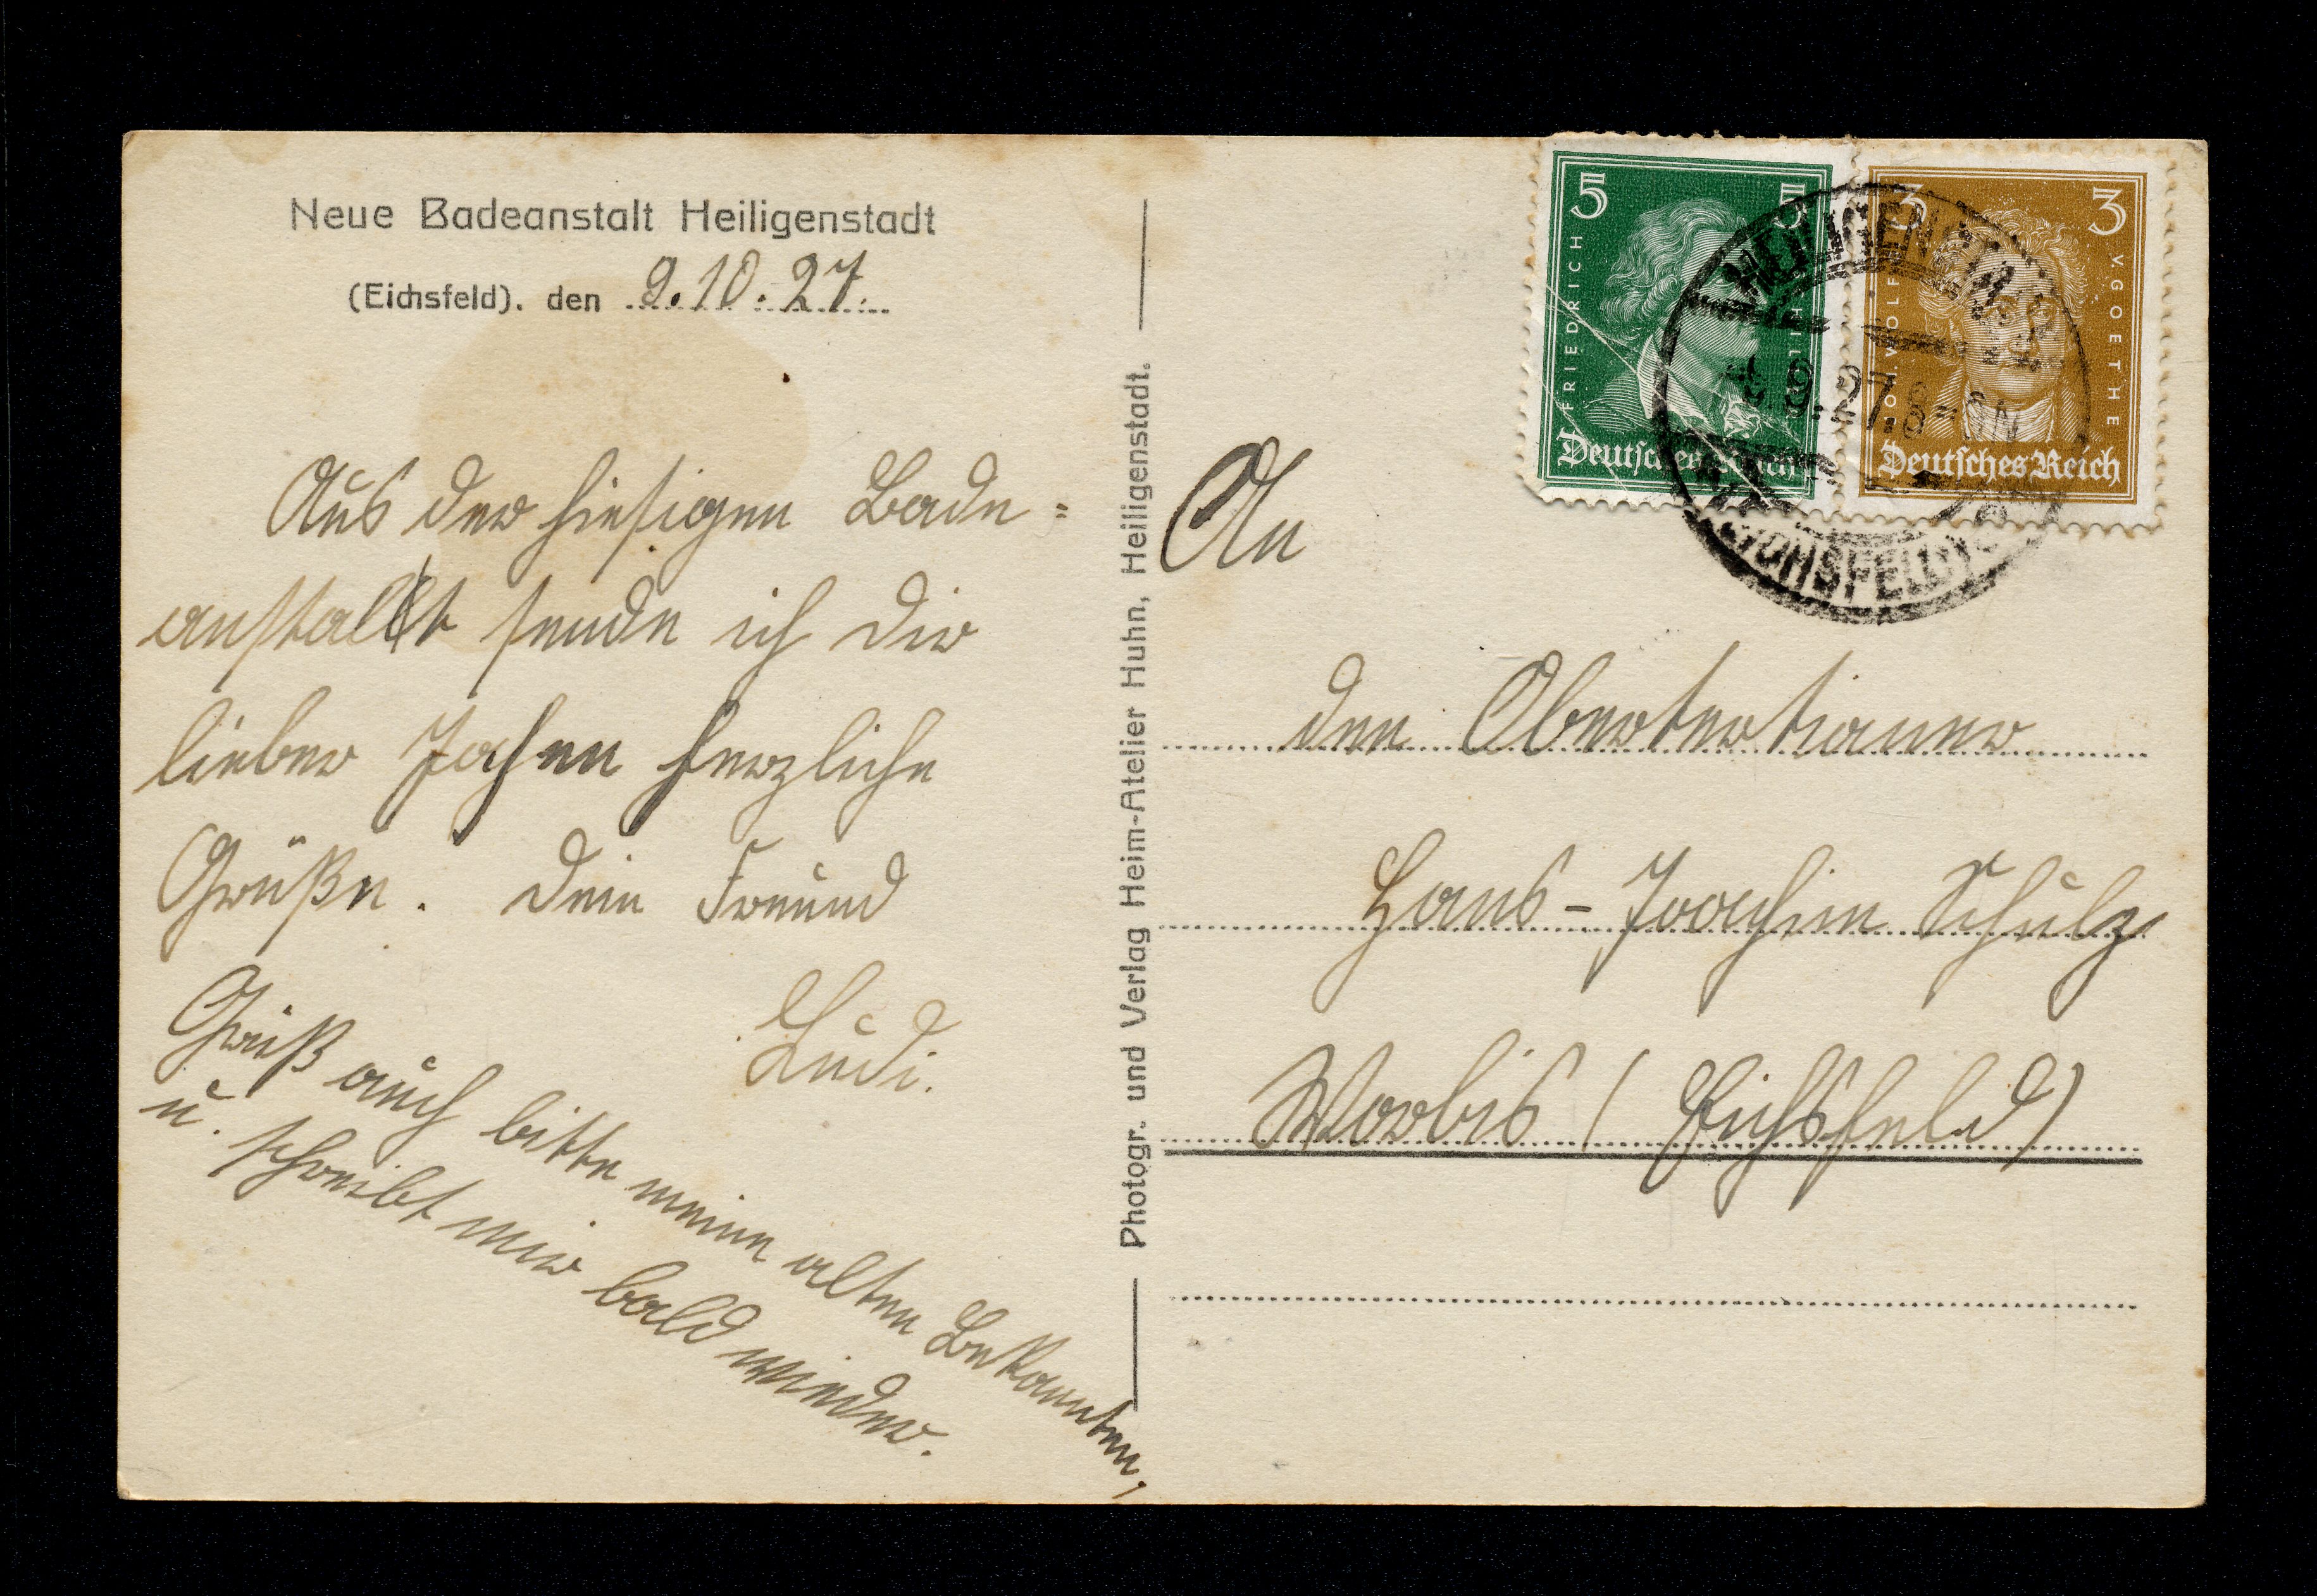 Neue Badeanstalt Heiligenstadt
(Eichsfeld). den 9.10.27.
Aus der hiesigen Bade=
anstalt sende ich Dir
lieber Jochen herzliche
Grüße. Dein Freund
Ludi.
Grüß auch bitte meine alten Bekannten,
u. schreibt mir bald wieder.
Photogr. und Verlag Heim-Atelier Huhn, Heiligenstadt.
5 5
FRIEDRICH
Deutsches Reich
3 3
JOH. WOLFG. V. GOETHE
Deutsches Reich
HEILIGENSTADT
9.27.8-
(EICHSFELD)
An
den Obertertianer
Hans-Joachim Schulz
Worbis (Eichsfeld)